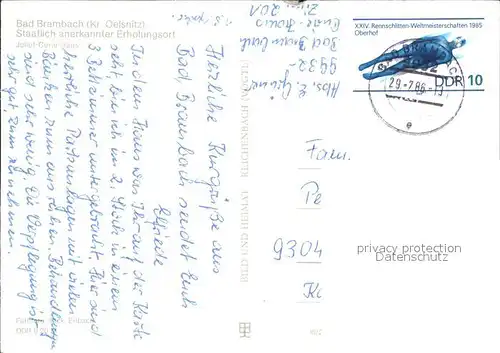 Bad Brambach (Kr. Oelsnitz)
Staatlich anerkannter Erholungsort
Herzliche Kurgrüße aus
Bad Brambach sendet Euch
Elfriede
In dem Haus was Ihr auf der Karte
seht, bin ich im 2. Stock in einem
3 Bettzimmer untergebracht. Hier sind
herrliche Parkanlagen mit vielen
Bänken zum aus ruhen. Behandlungen
sind sehr wenig. Die Verpflegung ist
sehr gut zum zunehmen.
BILD UND HEIMAT REICHENBACH
Abs. E.
9932
Bad Brambach
Zi. 201
XXIV. Rennschlitten-Weltmeisterschaften 1985
Oberhof
DDR 10
29.-7.86
e
Fam.
Pe
9304
K
privacy protection
Datenschutz